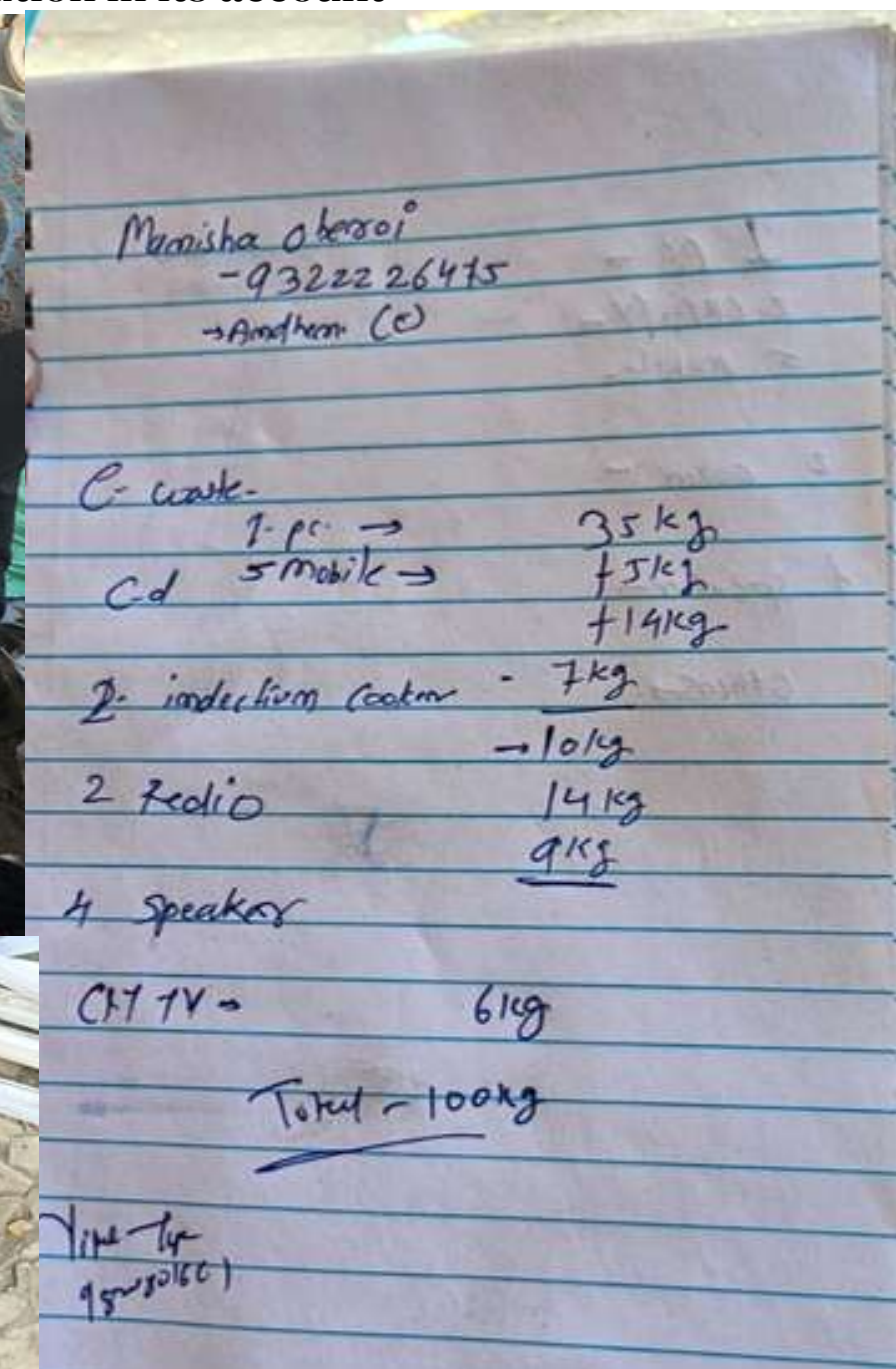 Manisha oberoi
-9322226475
→Andheri (e)
e- waste-
1- pc. → 35 kg
Cd 5 mobile → +5kg
+14kg
2- indectium Cooker - 7kg
→ 10kg
2 Redio 14 kg
9kg
4 Speaker
TV - 6kg
Total - 100kg